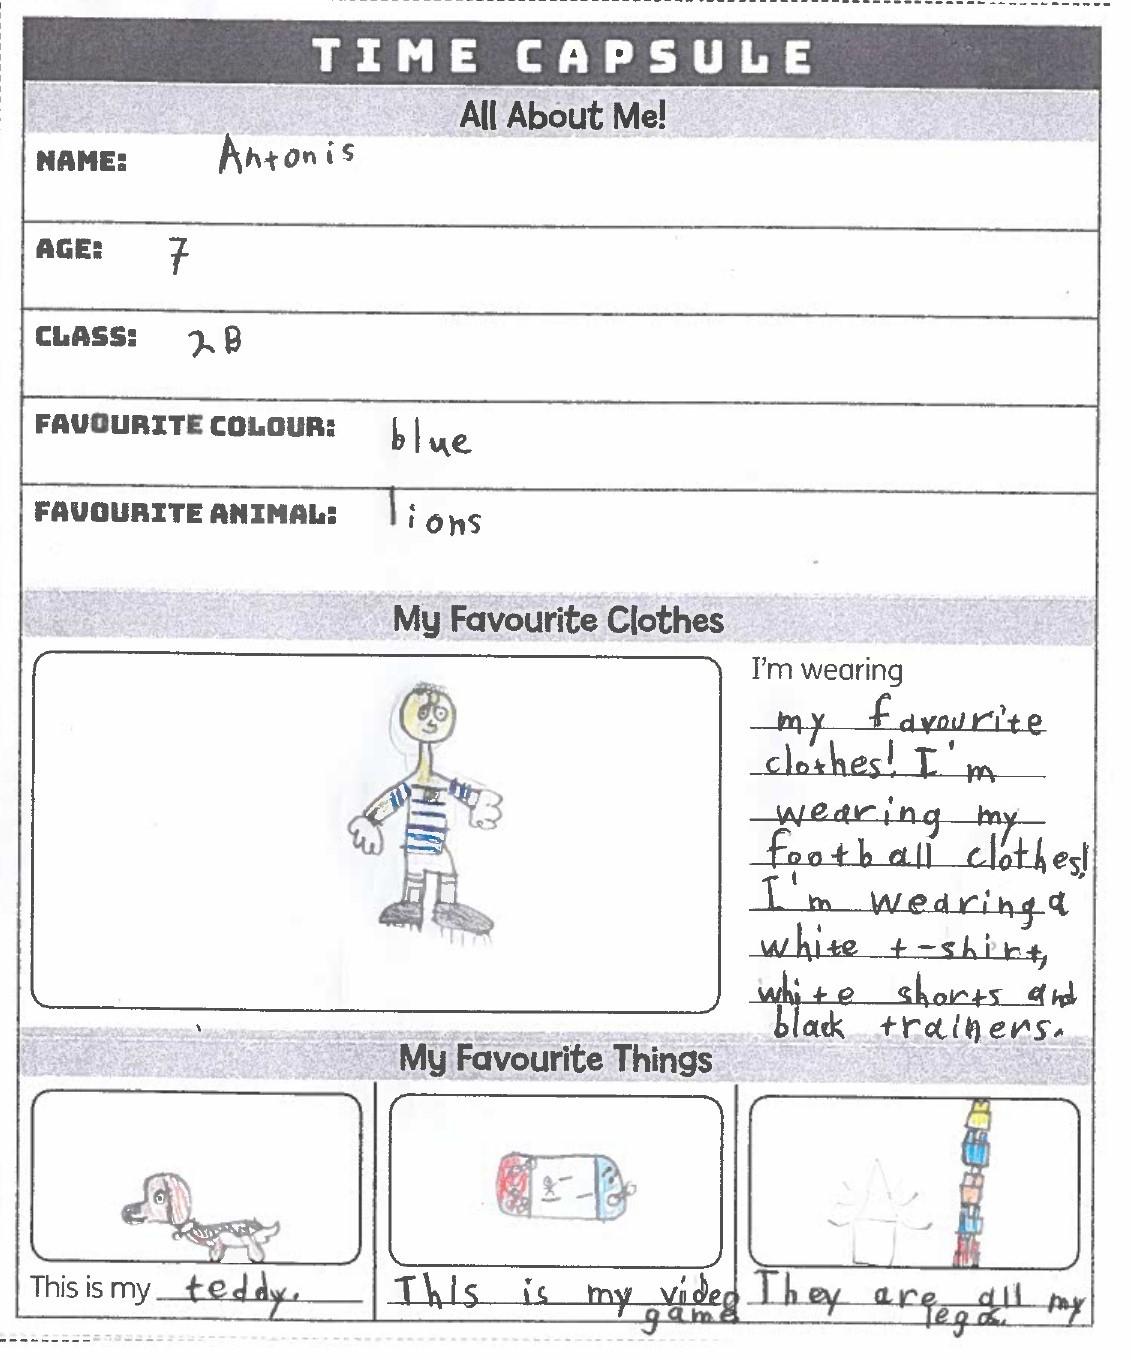 TIME CAPSULE
All About Me!
NAME: Antonis
AGE: 7
CLASS: 2B
FAVOURITE COLOUR: blue
FAVOURITE ANIMAL: lions
My Favourite Clothes
I'm wearing
my favourite
clothes! I'm
wearing my
football clothes!
I'm wearing a
white t-shirt,
white shorts and
black trainers.
My Favourite Things
This is my teddy.
This is my video
game
They are all my
legos.